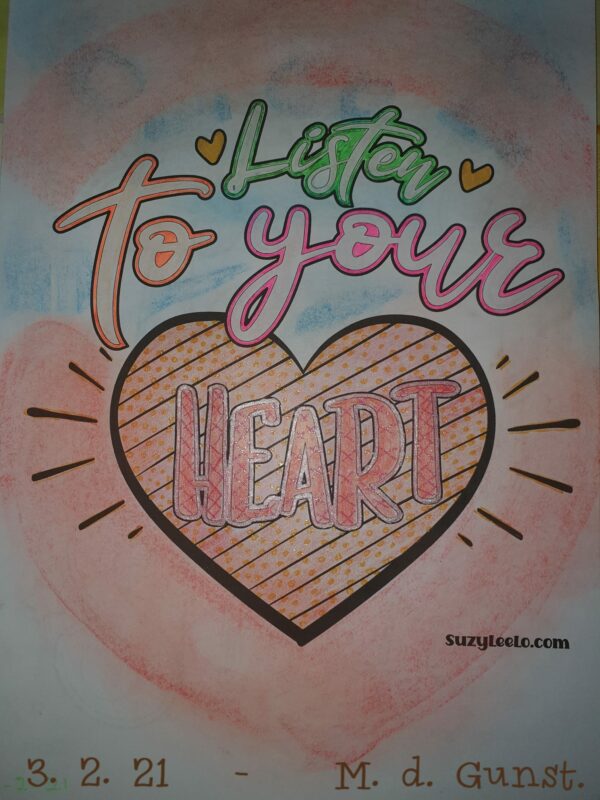 Listen
To your
HEART
SUZYLEELO.COM
3. 2. 21 - M. d. Gunst.